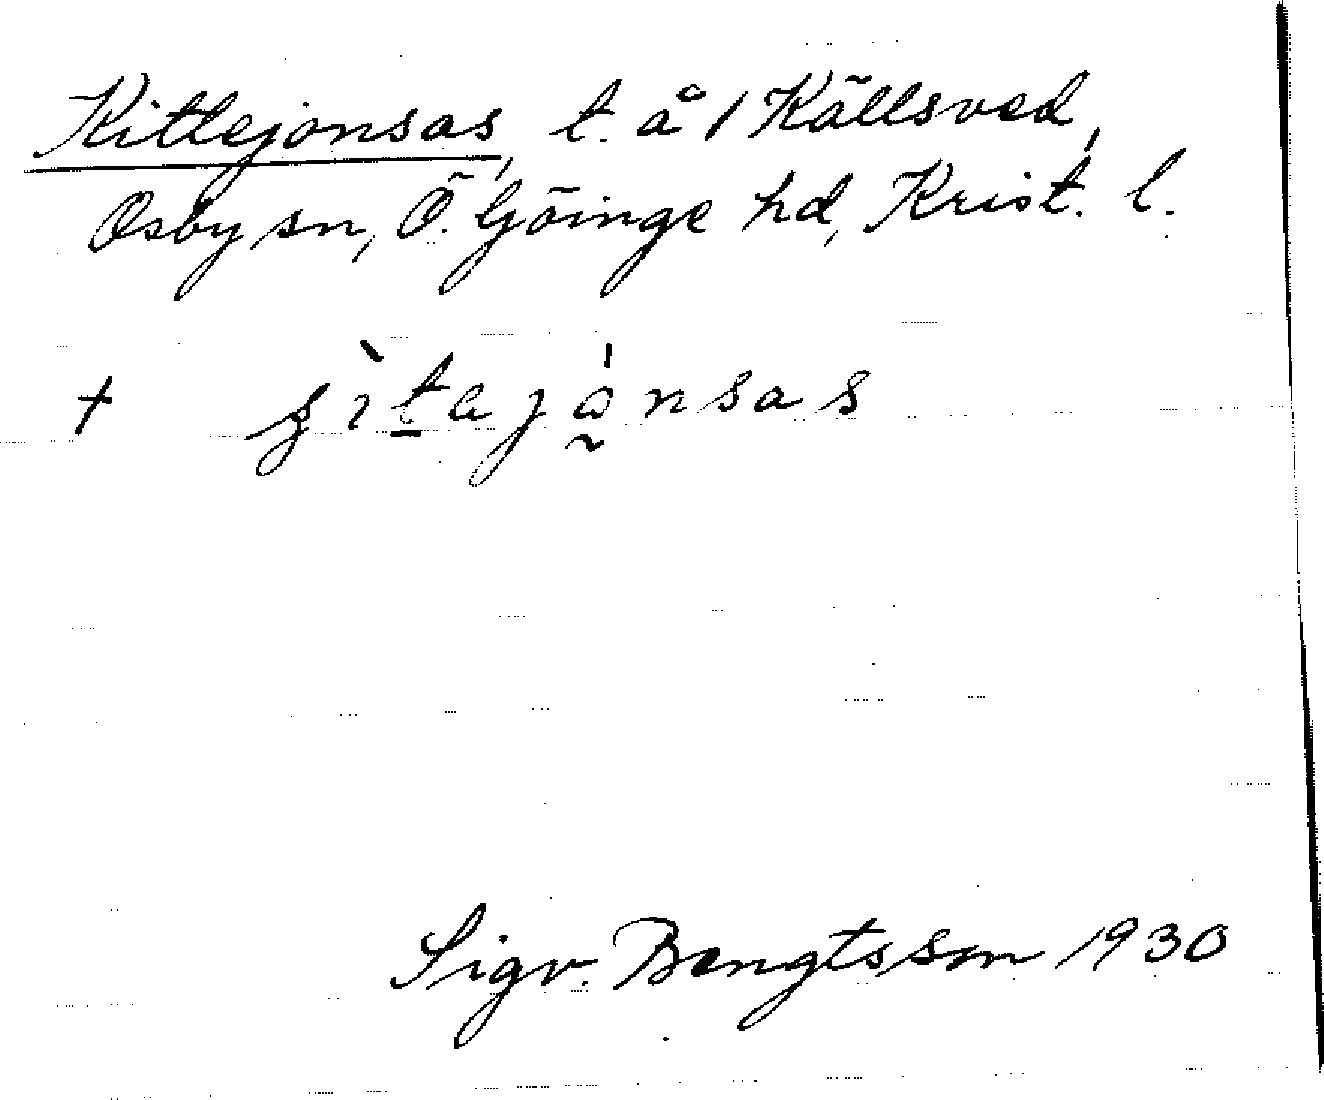 Kittejonsas, t. å 1 Källsved,
Osby sn, Ö. Göinge hd, Krist. l.
+
Sigv. Bengtsson 1930